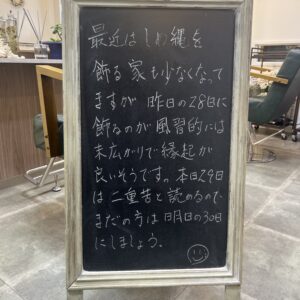 最近はしめ縄を
飾る家も少なくなって
ますが 昨日の28日に
飾るのが風習的には
末広がりで縁起が
良いそうです。本日29日
は二重苦と読めるので
まだの方は明日の30日
にしましょう。